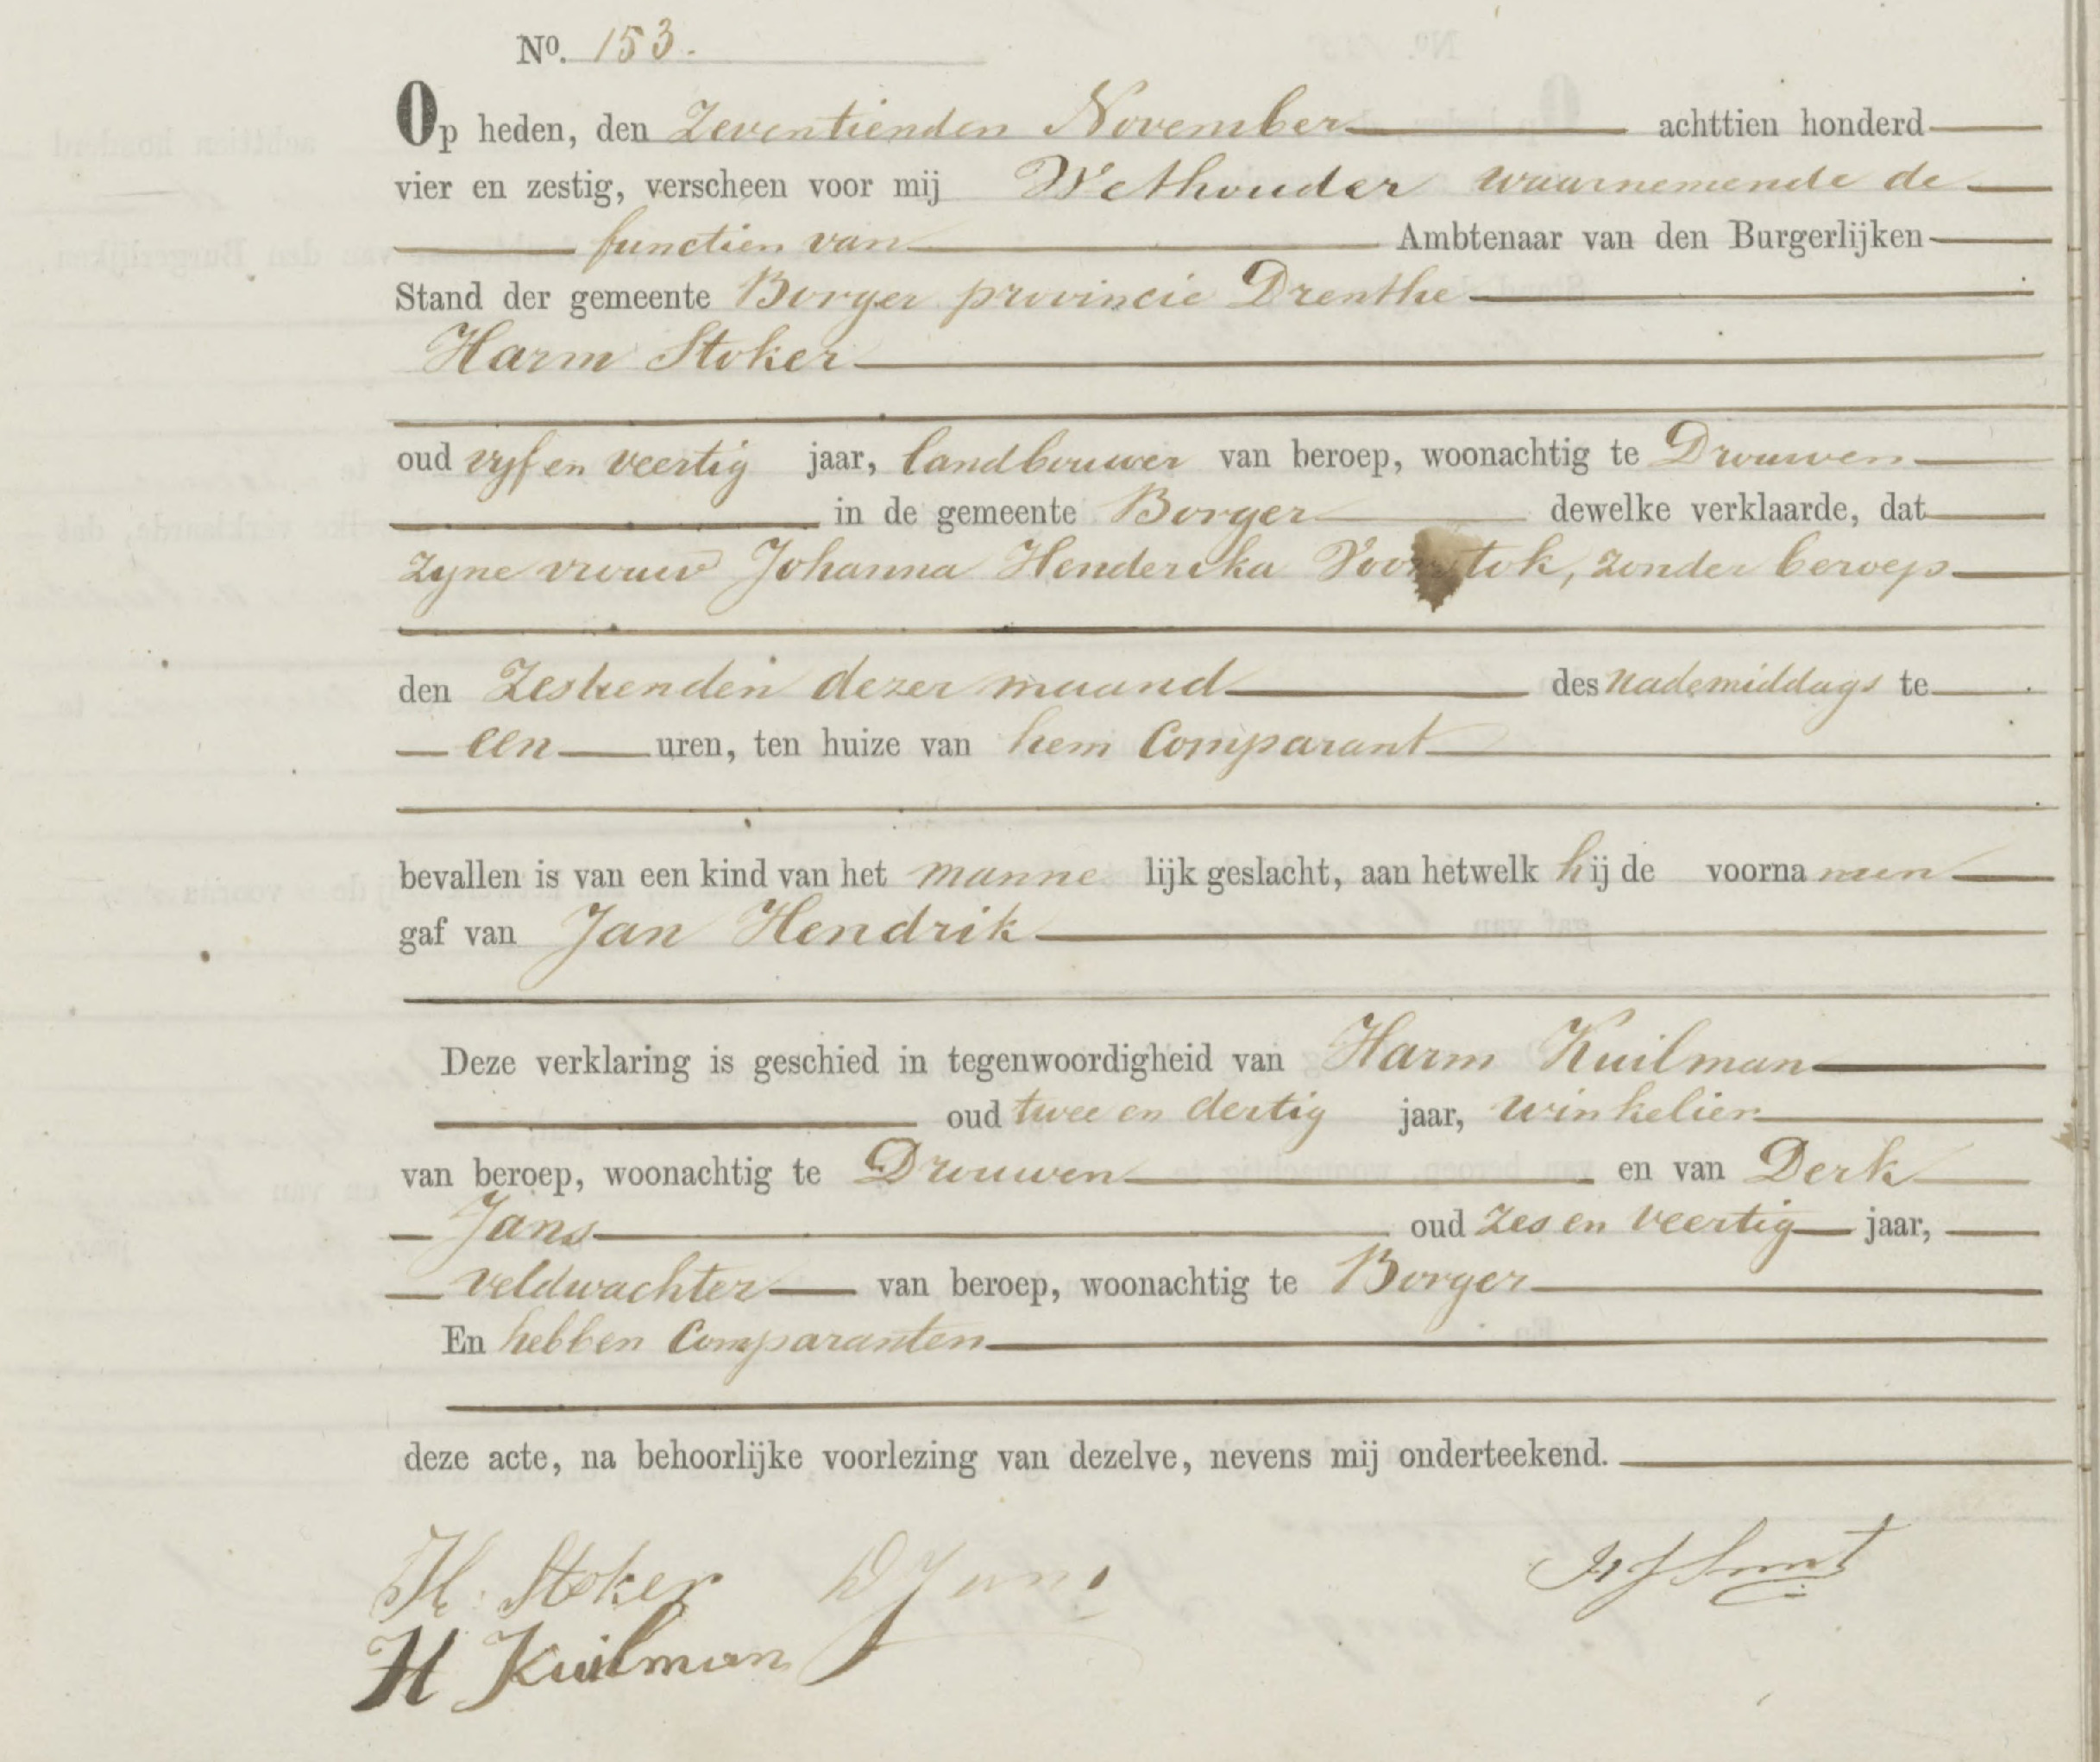 No. 153.
Op heden, den Zeventienden November achttien honderd
vier en zestig, verscheen voor mij Wethouder waarnemende de
functien van Ambtenaar van den Burgerlijken
Stand der gemeente Borger provincie Drenthe
Harm Stoker
oud vyf en veertig jaar, landbouwer van beroep, woonachtig te Drouwen
in de gemeente Borger dewelke verklaarde, dat
zyne vrouw Johanna Henderika zonder beroep
den Zestienden dezer maand des nademiddags te
een uren, ten huize van hem Comparant
bevallen is van een kind van het mannelijk geslacht, aan hetwelk hij de voornamen
gaf van Jan Hendrik
Deze verklaring is geschied in tegenwoordigheid van Harm Kuilman
oud twee en dertig jaar, winkelier
van beroep, woonachtig te Drouwen en van Derk
Jans oud zes en veertig jaar,
veldwachter van beroep, woonachtig te Borger
En hebben Comparanten
deze acte, na behoorlijke voorlezing van dezelve, nevens mij onderteekend.
H. Stoker D Jans
H Kuilman